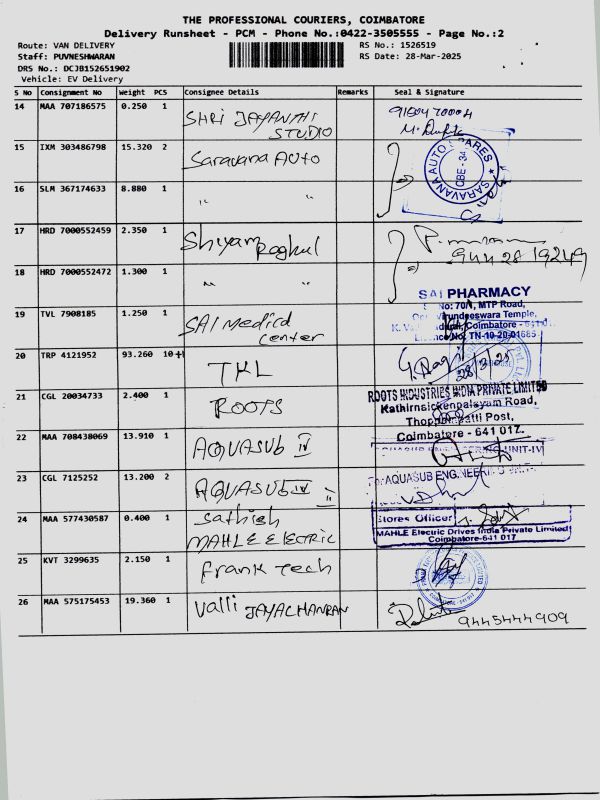 THE PROFESSIONAL COURIERS, COIMBATORE
Delivery Runsheet - PCM - Phone No.:0422-3505555 - Page No.:2
Route: VAN DELIVERY
RS No.: 1526519
Staff: PUVNESHWARAN
RS Date: 28-Mar-2025
DRS No.: DCJB152651902
Vehicle: EV Delivery
S No Consignment No Weight PCS Consignee Details Remarks Seal & Signature
14 MAA 707186575 0.250 1 SHRI JAYANTHI STUDIO
15 IXM 303486798 15.320 2 Saravana AUTO
SARAVANA AUTO SPARES
CBE-34
16 SLM 367174633 8.880 1 " "
17 HRD 7000552459 2.350 1 Shyam Raghul
9442819249
18 HRD 7000552472 1.300 1 " "
SAI PHARMACY
No: 70/1, MTP Road,
Temple,
Coimbatore - 641
TN-10-20-01685
19 TVL 7908185 1.250 1 SAI Medical center
20 TRP 4121952 93.260 10+1 TKL
28/3/25
21 CGL 20034733 2.400 1 ROOTS
ROOTS INDUSTRIES INDIA PRIVATE LIMITED
Kathirnaickenpalayam Road,
Thoppampatti Post,
Coimbatore - 641 017.
22 MAA 708438069 13.910 1 AQUASUb IV
UNIT-IV
23 CGL 7125252 13.200 2 AQUASUb IV
For AQUASUB ENGINEERING
24 MAA 577430587 0.400 1 Sathish MAHLE Electric
Stores Officer
MAHLE Elecuic Drives India Private Limited
Coimbatore-641 017
25 KVT 3299635 2.150 1 Frank Tech
26 MAA 575175453 19.360 1 Valli JAYACHANRAN
9445444909